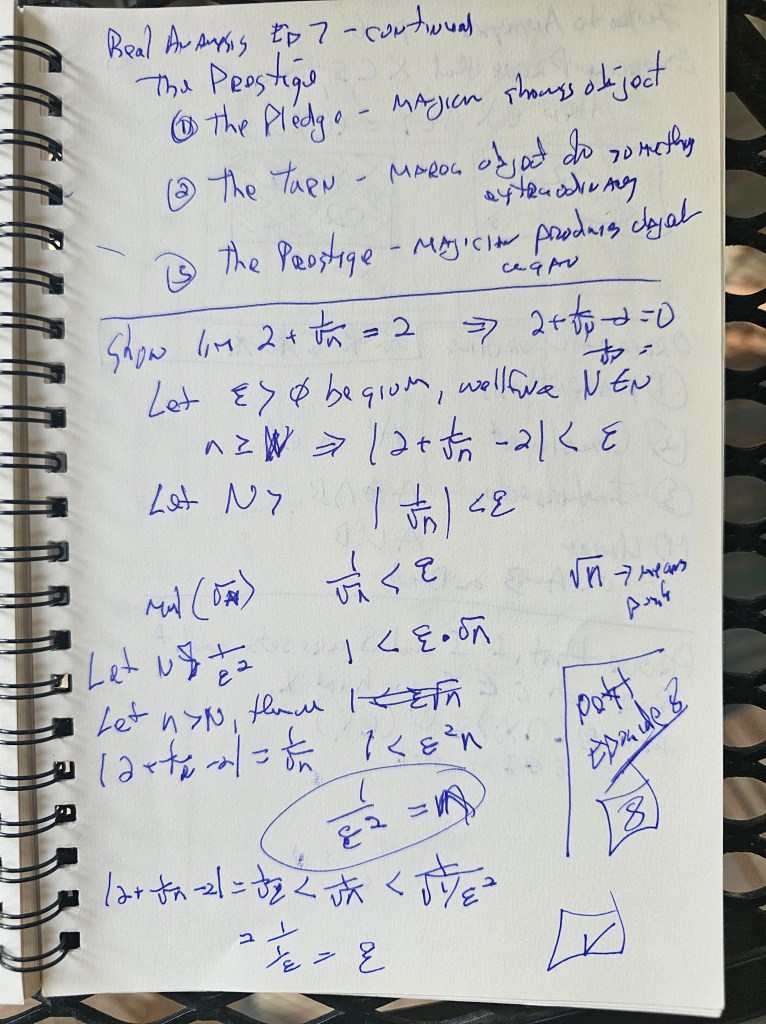 Real Analysis EP 7 - continued
The Prestige
① the Pledge - Magician shows object
② the Turn - Makes object do something
extraordinary
③ the Prestige - Magician produces object
again
Show lim 2 + 1/√n = 2 ⇒ 2 + 1/√n - 2 = 0
1/√n =
Let ε > ∅ be given, we'll find N ∈ N
n ≥ N ⇒ |2 + 1/√n - 2| < ε
Let N > |1/√n| < ε
1/√n < ε √n → means
1 < ε·√n
Let N > 1/ε²
Let n > N, then 1 < ε√n
|2 + 1/√n - 2| = 1/√n 1 < ε²n
1/ε² = n
Episode 8
8
|2 + 1/√n - 2| = 1/√n < 1/√N < 1/√1/ε²
= 1/1/ε = ε